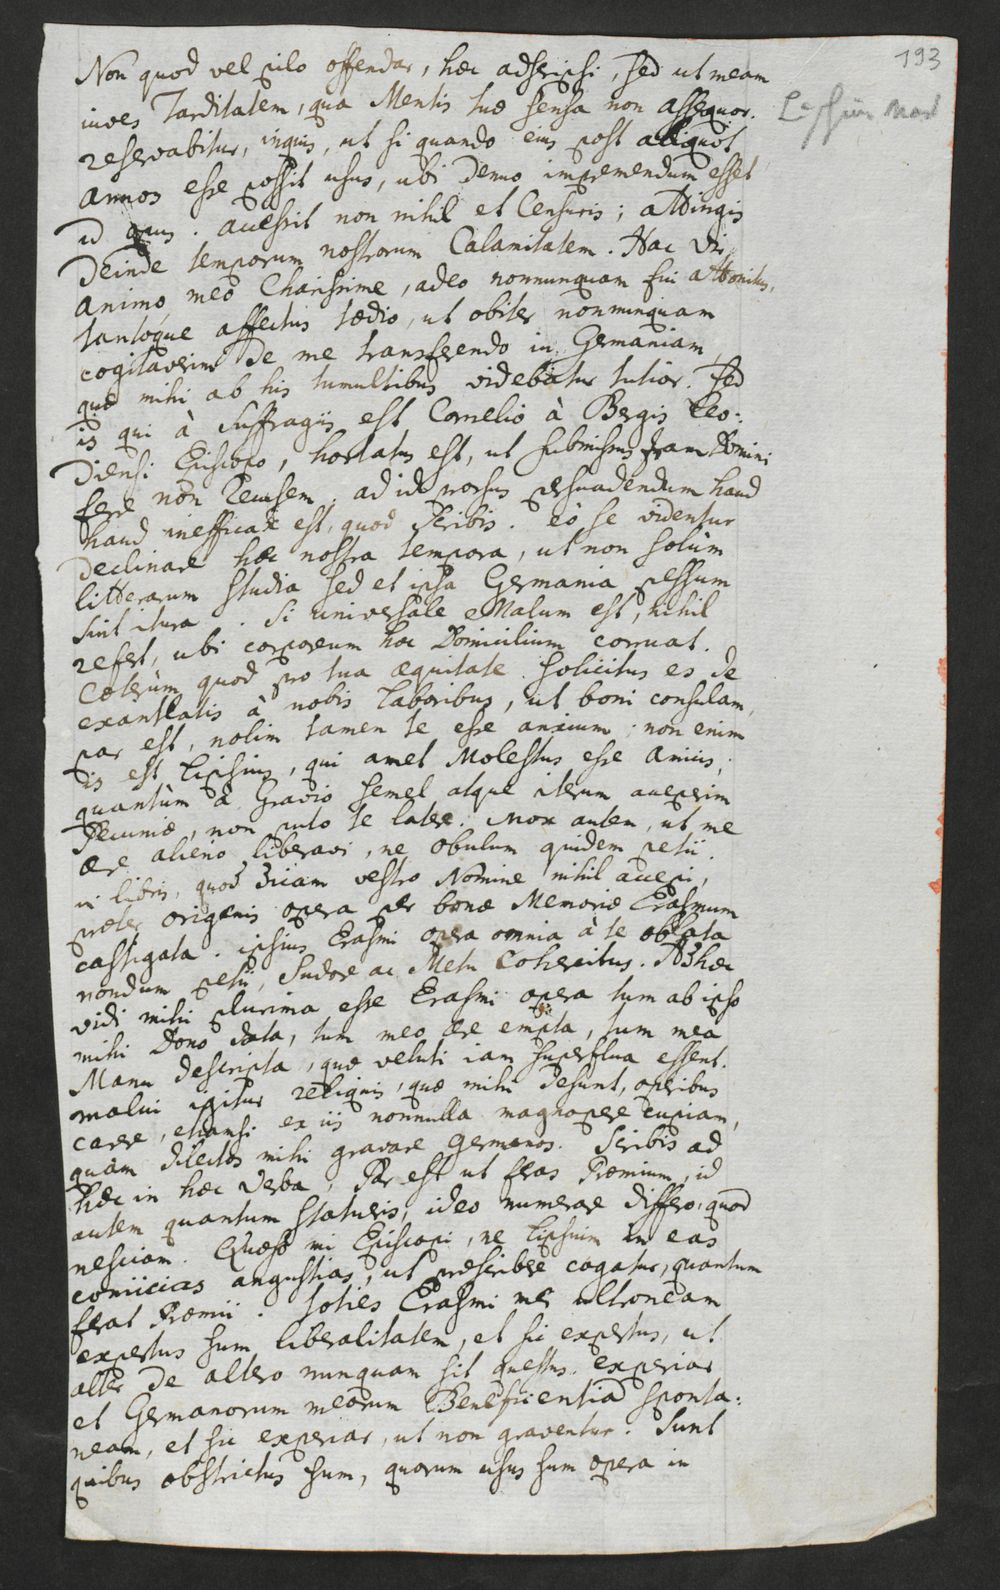 193
Non quod vel pilo offendar, hæc adscripsi, sed ut meam
iuves Tarditatem, qua Mentis tuæ sensa non assequor.
reservabitur, inquis, ut si quando eius post aliquot
annos esse possit usus, ubi denuo imprimendum esset
id opus. accessit non nihil et Censuris; attingis
Deinde temporum nostrorum Calamitatem. Hac vir
animo meo Charissime, adeo nonnunquam fui attonitus,
tantoque affectus tædio, ut obiter nonnunquam
cogitaverim de me transferendo in Germaniam,
quæ mihi ab his tumultibus videbatur tutior. Sed
is qui à Suffragiis est Cornelio à Bergis Leo:
diensi Episcopo, hortatus est, ut submissus iram Domini
ferre non recusem. ad id prorsus persuadendum haud
haud inefficax est, quod scribis. eò se videntur
Declinare hæc nostra tempora, ut non solùm
litterarum studia sed et ipsa Germania pessum
sint itura. Si universale Malum est, nihil
refert, ubi corporeum hoc Domicilium corruat.
Cæterùm quod pro tua æquitate solicitus es de
exantlatis à nobis laboribus, ut boni consulam,
par est, nolim tamen te esse anxium; non enim
is est Lipsius, qui amet Molestus esse amicis;
quantùm à Gravio semel atque iterum acceperim
Pecuniæ, non puto te latere. Mox autem, ut me
ære alieno liberavi, ne obulum quidem petii.
in libris, quod sciam vestro Nomine nihil accepi,
præter origenis opera per bonæ Memoriæ Erasmum
castigata. ipsius Erasmi opera omnia à te oblata
nondum petii, Pudore ac Metu Cohercitus. Ad hæc
vidi mihi plurima esse Erasmi opera tum ab ipso
mihi Dono data, tum meo ære empta, tum mea
Manu descripta, quæ veluti iam superflua essent.
malui igitur reliquis, quæ mihi desunt, operibus
carere, etiamsi ex iis nonnulla magnopere cupiam,
quàm dilectos mihi gravare Germanos. Scribis ad
hæc in hæc verba, Par est ut feras Præmium, id
autem quantum statueris, ideo numerare differo, quod
nesciam. Quæso mi Episcopi, ne Lipsium in eas
coniicias angustias, ut præscribere cogatur, quantum
ferat Præmii. toties Erasmi mei ultroneam
expertus sum liberalitatem, et sic expertus, ut
alter de altero nunquam sit questus. experiar
et Germanorum meorum Beneficientiam sponta:
neam, et sic experiar, ut non graventur. Sunt
quibus obstrictus sum, quorum usus sum opera in